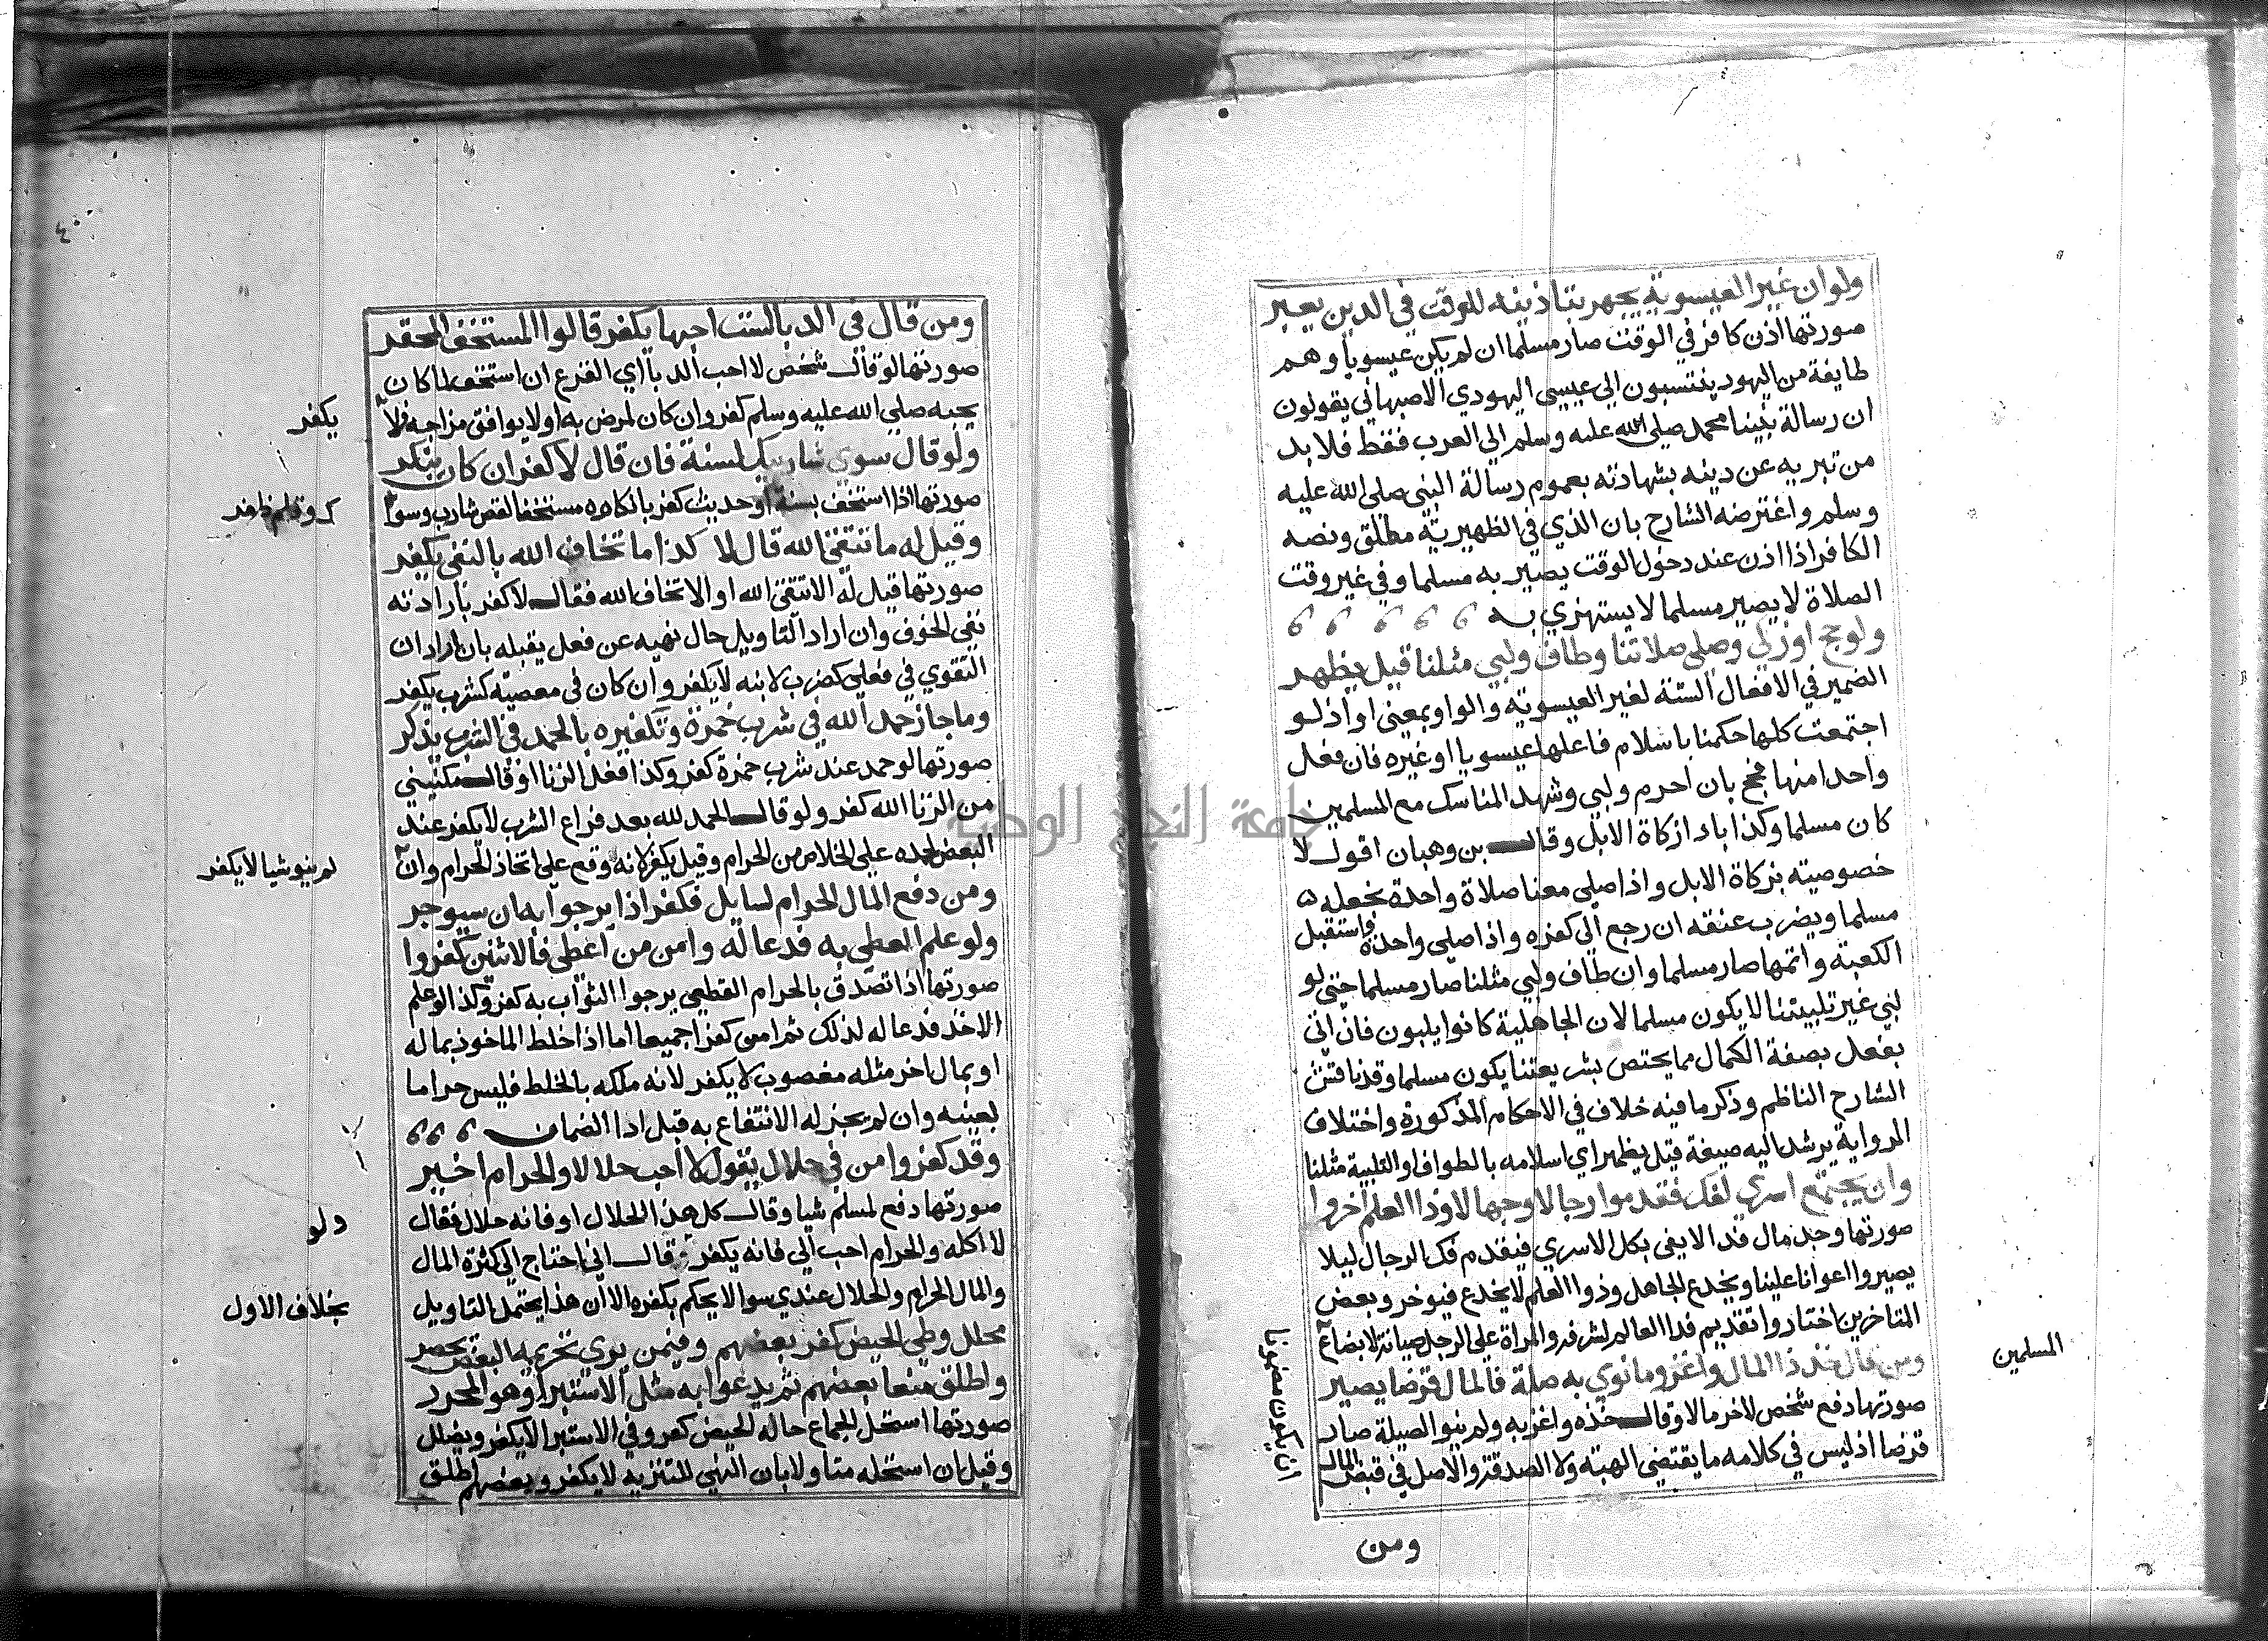 ولو ان غير العيسوية يجهر بتاذينه للوقت في الدين يعبر
صورتها اذن كافر في الوقت صار مسلما ان لم يكن عيسويا وهم
طايفة من اليهود ينتسبون الي عيسي اليهودي الاصبهاني يقولون
ان رسالة نبينا محمد صلي الله عليه وسلم الي العرب فقط فلابد
من تبريه عن دينه بشهادته بعموم رسالة النبي صلي الله عليه
وسلم واعترضه الشارح بان الذي في الظهيرية مطلق ونصه
الكافر اذا اذن عند دخول الوقت يصير به مسلما وفي غير وقت
الصلاة لا يصير مسلما لا يستهزي به
ولو حج او زكي وصلي صلاتنا وطاف ولبي مثلنا قيل يظهر
الضمير في الافعال الستة لغير العيسوية والواو بمعني او اذ لو
اجتمعت كلها حكمنا باسلام فاعلها عيسويا او غيره فان فعل
واحدا منها فحج بان احرم ولبي وشهد المناسك مع المسلمين
كان مسلما وكذا باداء زكاة الابل وقال بن وهبان اقول لا
خصوصية بزكاة الابل واذا صلي معنا صلاة واحدة نجعله
مسلما ويضرب عنقه ان رجع الي كفره واذا صلي واحدة واستقبل
الكعبة واتمها صار مسلما وان طاف ولبي مثلنا صار مسلما حتي لو
لبي غير تلبيتنا لا يكون مسلما لان الجاهلية كانوا يلبون فان اتي
بفعل بصفة الكمال مما يختص بشريعتنا يكون مسلما وقد ناقش
الشارح الناظم وذكر ما فيه خلاف في الاحكام المذكورة واختلاف
الرواية يرشد اليه صيغة قيل يظهر اي اسلامه بالطواف او التلبية مثلنا
وان يجتمع اسري لفك فقدموا رجالا وجهالا وذا العلم اخروا
صورتها وجد مال فدا لا يفي بكل الاسري فيقدم فك الرجال ليلا
يصيروا اعوانا علينا ويخدع الجاهل وذوا العلم لا يخدع فيوخر وبعض
المتاخرين اختاروا تقديم فدا العالم لشرفه والمراة علي الرجل صيانة لابضاع
المسلمين
ومن قال خذ ذا المال واغز وما نوي به صلة فالمال قرضا يصير
صورتها دفع شخص لاخر مالا وقال خذه واغز به ولم ينو الصيلة صار
قرضا اذ ليس في كلامه ما يقتضي الهبة ولا الصدقة والاصل في قبض المال
ان يكون مضمونا
ومن
ومن قال في الدبا لست احبها يكفر قالوا المستخف المحقر
صورتها لو قال شخص لا احب الدبا اي القرع ان استخف لما كان
يحبه صلي الله عليه وسلم كفر وان كان لمرض به او لا يوافق مزاجه فلا
يكفر
ولو قال سوي شاربيك لسنة فان قال لا كفر ان كان ينكر
صورتها اذا استخف بسنة او حديث كفر بانكاره مستخفا لقص شارب وسوا
وقيل له ما تتقي الله قال لا كذا ما تخاف الله بالنفي يكفر
صورتها قيل له الا تتقي الله او الا تخاف الله فقال لا كفر بارادته
نفي الخوف وان اراد التاويل حال نهيه عن فعل يقبله بان اراد ان
التقوي في فعلي كضرب لابنه لا يكفر وان كان في معصية كشرب يكفر
وما جاز حمد الله في شرب خمرة وتكفيره بالحمد في الشرب يذكر
صورتها لو حمد عند شرب خمرة كفر وكذا فعل الزنا او قال مكنيني
من الزنا الله كفر ولو قال الحمد لله بعد فراغ الشرب لا يكفر عند
البعض لحمده علي الخلاص من الحرام وقيل يكفر لانه وقع علي اتخاذ الحرام وان
لم ينو شيا لا يكفر
ومن دفع المال الحرام لسايل فكفر اذا يرجوا به ان سيوجر
ولو علم المعطي به فدعا له وامن من اعطي فالاثنين كفروا
صورتها اذا تصدق بالحرام القطعي يرجوا الثواب به كفر وكذا لو علم
الاخذ فدعا له لذلك ثم امن كفرا جميعا اما اذا خلط الماخوذ بماله
او بمال اخر مثله مغصوب لا يكفر لانه ملكه بالخلط فليس حراما
بعينه وان لم يجز له الانتفاع به قبل ادا الضمان
وقد كفروا من في حلال يقول لا احب حلالا والحرام اخير
صورتها دفع لمسلم شيا وقال كل هذا الحلال او فانه حلال فقال
لا اكله والحرام احب الي فانه يكفر قال اني احتاج الي كثرة المال
ولو
والمال الحرام والحلال عندي سوا لا يحكم بكفره الا ان هذا يحتمل التاويل
بخلاف الاول
محلل وطي الحيض كفر بعضهم وفيمن يري تحريمه البعض يحصر
واطلق منعا بعضهم ثم يدعوا به مثل الاستبرا وهو المحرر
صورتها استحل الجماع حاله الحيض كفر وفي الاستبرا لا يكفر ويضلل
وقيل ان استحله متاولا بان النهي للتنزيه لا يكفر وبعضهم اطلق
جامعة النجاح الوطنية